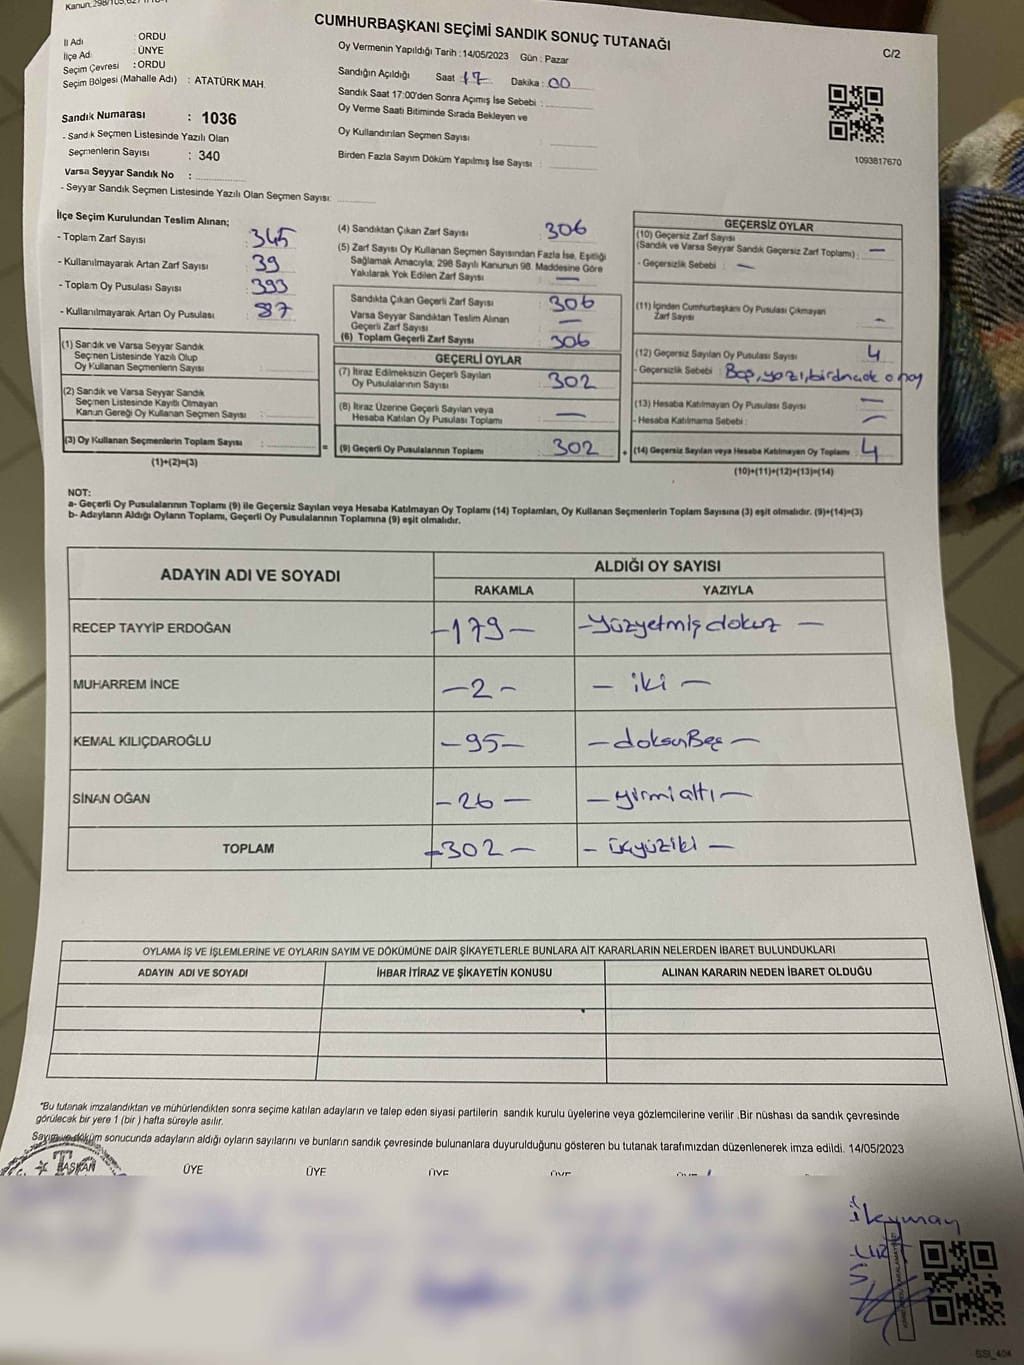 CUMHURBAŞKANI SEÇİMİ SANDIK SONUÇ TUTANAĞI
C/2
İl Adı : ORDU
İlçe Ad : ÜNYE
Seçim Çevresi : ORDU
Seçim Bölgesi (Mahalle Adı) : ATATÜRK MAH.
Oy Vermenin Yapıldığı Tarih :14/05/2023 Gün : Pazar
Sandığın Açıldığı Saat 17 Dakika : 00
Sandık Saat 17:00'den Sonra Açımış İse Sebebi :
Oy Verme Saati Bitiminde Sırada Bekleyen ve
Oy Kullandırılan Seçmen Sayısı
Birden Fazla Sayım Döküm Yapılmış İse Sayısı
1093817670
Sandık Numarası : 1036
- Sandık Seçmen Listesinde Yazılı Olan
Seçmenlerin Sayısı : 340
Varsa Seyyar Sandık No :
- Seyyar Sandık Seçmen Listesinde Yazılı Olan Seçmen Sayısı:
İlçe Seçim Kurulundan Teslim Alınan;
- Toplam Zarf Sayısı 345
- Kullanılmayarak Artan Zarf Sayısı : 39
- Toplam Oy Pusulası Sayısı : 393
- Kullanılmayarak Artan Oy Pusulası : 87
(1) Sandık ve Varsa Seyyar Sandık
Seçmen Listesinde Yazılı Olup
Oy Kullanan Seçmenlerin Sayısı :
(2) Sandık ve Varsa Seyyar Sandık
Seçmen Listesinde Kayıtlı Olmayan
Kanun Gereği Oy Kullanan Seçmen Sayısı :
(3) Oy Kullanan Seçmenlerin Toplam Sayısı :
(1)+(2)=(3)
(4) Sandıktan Çıkan Zarf Sayısı : 306
(5) Zarf Sayısı Oy Kullanan Seçmen Sayısından Fazla İse, Eşitliği
Sağlamak Amacıyla, 298 Sayılı Kanunun 98. Maddesine Göre
Yakılarak Yok Edilen Zarf Sayısı : —
Sandıkta Çıkan Geçerli Zarf Sayısı : 306
Varsa Seyyar Sandıktan Teslim Alınan
Geçerli Zarf Sayısı : —
(6) Toplam Geçerli Zarf Sayısı : 306
GEÇERLİ OYLAR
(7) İtiraz Edilmeksizin Geçerli Sayılan
Oy Pusulalarının Sayısı : 302
(8) İtiraz Üzerine Geçerli Sayılan veya
Hesaba Katılan Oy Pusulası Toplamı : —
= (9) Geçerli Oy Pusulalarının Toplamı : 302
GEÇERSİZ OYLAR
(10) Geçersiz Zarf Sayısı
(Sandık ve Varsa Seyyar Sandık Geçersiz Zarf Toplamı) : —
- Geçersizlik Sebebi : —
(11) İçinden Cumhurbaşkanı Oy Pusulası Çıkmayan
Zarf Sayısı : -
(12) Geçersiz Sayılan Oy Pusulası Sayısı : 4
- Geçersizlik Sebebi : Boş, yazı,
(13) Hesaba Katılmayan Oy Pusulası Sayısı : —
- Hesaba Katılmama Sebebi : —
+ (14) Geçersiz Sayılan veya Hesaba Katılmayan Oy Toplamı : 4
(10)+(11)+(12)+(13)=(14)
NOT:
a- Geçerli Oy Pusulalarının Toplamı (9) ile Geçersiz Sayılan veya Hesaba Katılmayan Oy Toplamı (14) Toplamları, Oy Kullanan Seçmenlerin Toplam Sayısına (3) eşit olmalıdır. (9)+(14)=(3)
b- Adayların Aldığı Oyların Toplamı, Geçerli Oy Pusulalarının Toplamına (9) eşit olmalıdır.
ADAYIN ADI VE SOYADI
ALDIĞI OY SAYISI
RAKAMLA YAZIYLA
RECEP TAYYİP ERDOĞAN -179- -yüzyetmişdokuz —
MUHARREM İNCE -2- - iki —
KEMAL KILIÇDAROĞLU -95- -doksanBeş —
SİNAN OĞAN -26- -yirmialtı —
TOPLAM -302- - üçyüziki —
OYLAMA İŞ VE İŞLEMLERİNE VE OYLARIN SAYIM VE DÖKÜMÜNE DAİR ŞİKAYETLERLE BUNLARA AİT KARARLARIN NELERDEN İBARET BULUNDUKLARI
ADAYIN ADI VE SOYADI İHBAR İTİRAZ VE ŞİKAYETİN KONUSU ALINAN KARARIN NEDEN İBARET OLDUĞU
"Bu tutanak imzalandıktan ve mühürlendikten sonra seçime katılan adayların ve talep eden siyasi partilerin sandık kurulu üyelerine veya gözlemcilerine verilir .Bir nüshası da sandık çevresinde
görülecek bir yere 1 (bir ) hafta süreyle asılır.
Sayım ve döküm sonucunda adayların aldığı oyların sayılarını ve bunların sandık çevresinde bulunanlara duyurulduğunu gösteren bu tutanak tarafımızdan düzenlenerek imza edildi. 14/05/2023
BAŞKAN ÜYE ÜYE ÜYE ÜYE
SSİ_404